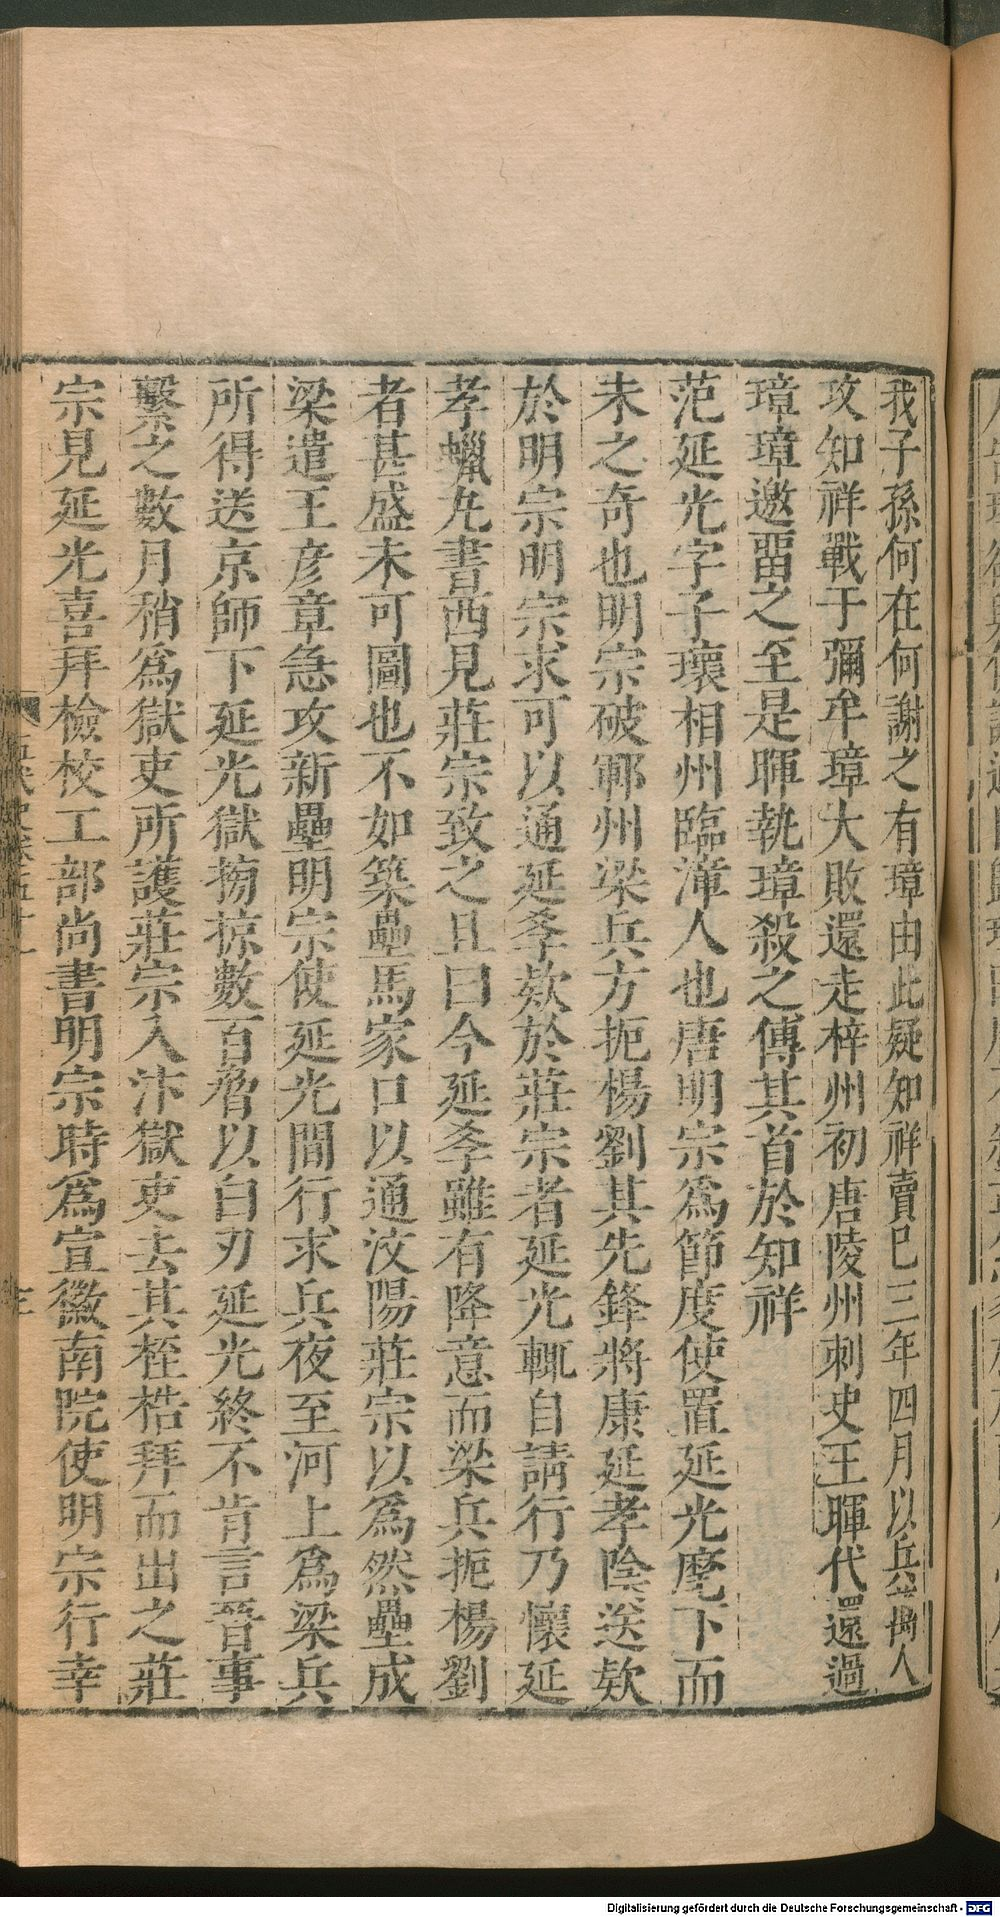 我子孫何在何謝之有璋由此疑知祥賣已三年四月以兵萬人
攻知祥戰于彌牟璋大敗還走梓州初唐陵州刺史王暉代還過
璋璋邀畱之至是暉執璋殺之傳其首於知祥
范延光字子瓌相州臨漳人也唐明宗爲節度使置延光麾下而
未之奇也明宗破鄆州梁兵方扼楊劉其先鋒將康延孝陰送欵
於明宗明宗求可以通延孝欵於莊宗者延光輒自請行乃懷延
孝蠟丸書西見莊宗致之且曰今延孝雖有降意而梁兵扼楊劉
者甚盛未可圖也不如築壘馬家口以通汶陽莊宗以爲然壘成
梁遣王彥章急攻新壘明宗使延光間行求兵夜至河上爲梁兵
所得送京師下延光獄搒掠數百脅以白刃延光終不肯言晉事
繫之數月稍爲獄吏所護莊宗入汴獄吏去其桎梏拜而出之莊
宗見延光喜拜檢校工部尚書明宗時爲宣徽南院使明宗行幸
五代史卷五十一
Digitalisierung gefördert durch die Deutsche Forschungsgemeinschaft - DFG